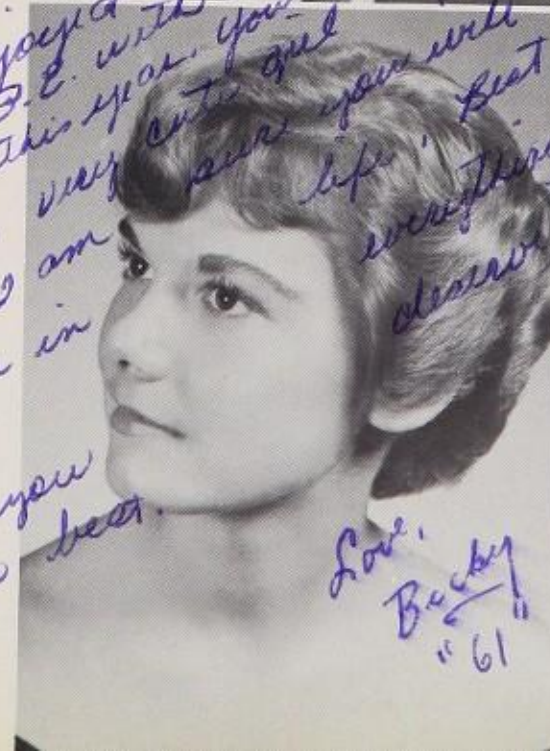 P.E. with
this year. You
very cute and
am sure you will
in life. Best
everything
you deserve
best.
Love,
Becky
"61"